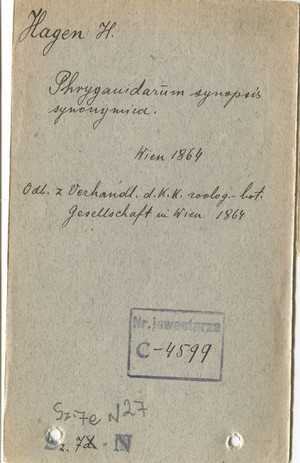 Hagen H.
Phryganidarum synopsis
synonymica.
Wien 1864
Odb. z Verhandl. d. K. K. zoolog.-bot.
Gesellschaft in Wien 1864
Nr. inwentarza
C-4599
Sz. 7e N27
Sz. 7d - N